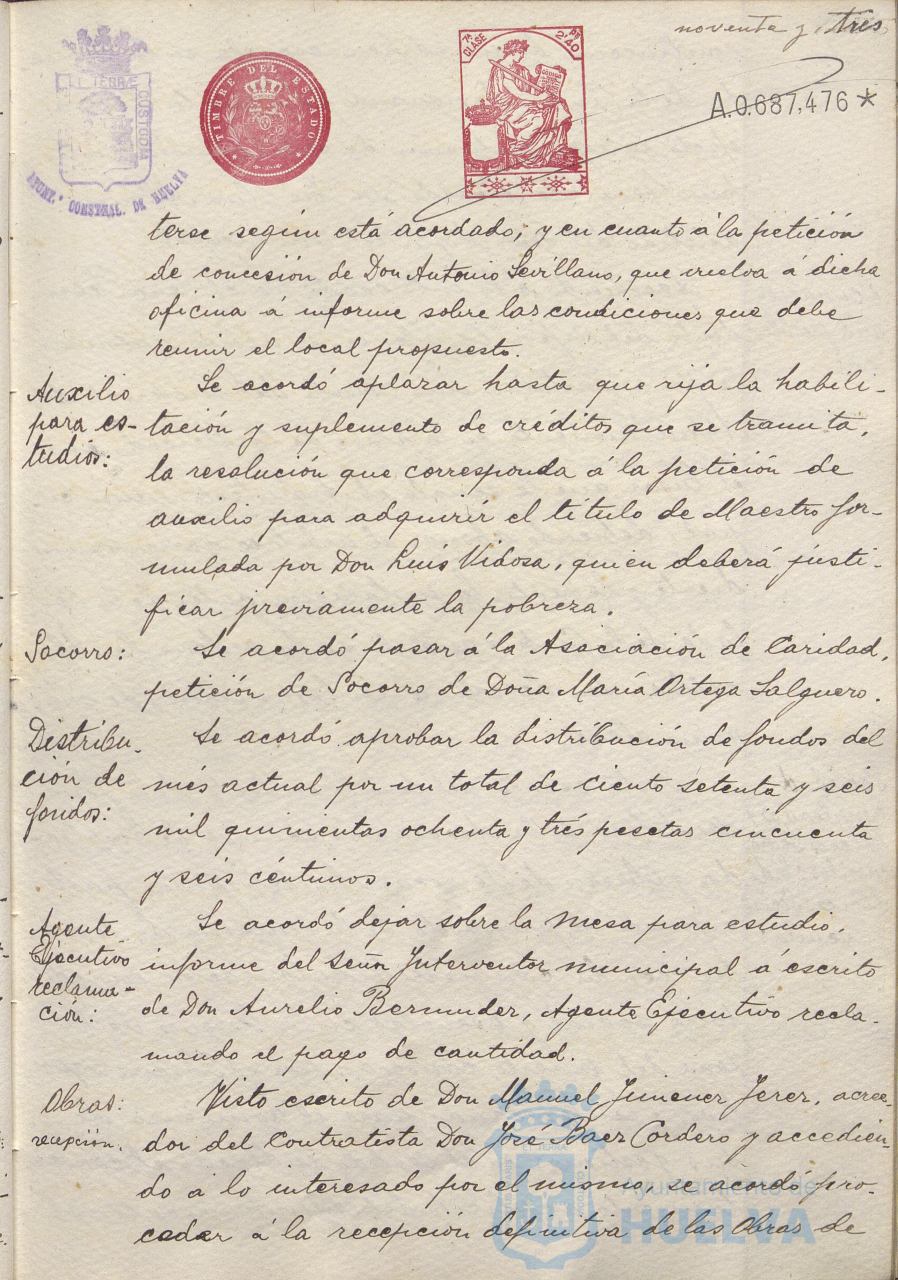 noventa y tres
7ª CLASE
Pts 2'40
TIMBRE DEL ESTADO
A.0.687,476 *
TERRÆ
CUSTODIA
AYUNT.º CONSTNAL. DE HUELVA
terse según está acordado; y en cuanto á la petición
de concesión de Don Antonio Sevillano, que vuelva á dicha
oficina á informe sobre las condiciones que debe
reunir el local propuesto.
Auxilio
para es-
tudios:
Se acordó aplazar hasta que rija la habili-
tación y suplemento de créditos que se tramita,
la resolución que corresponda á la petición de
auxilio para adquirir el título de Maestro for-
mulada por Don Luís Vidosa, quien deberá justi-
ficar previamente la pobreza.
Socorro:
Se acordó pasar á la Asociación de Caridad,
petición de Socorro de Doña María Ortega Salguero.
Distribu-
ción de
fondos:
Se acordó aprobar la distribución de fondos del
més actual por un total de ciento setenta y seis
mil quinientas ochenta y trés pesetas cincuenta
y seis céntimos.
Agente
Ejecutivo
reclama-
ción:
Se acordó dejar sobre la mesa para estudio,
informe del señor Interventor municipal á escrito
de Don Aurelio Bermudez, Agente Ejecutivo recla-
mando el pago de cantidad.
Obras:
recepción.
Visto escrito de Don Manuel Jimenez Jerez, acree-
dor del Contratista Don José Baez Cordero y accedien-
do á lo interesado por el mismo, se acordó pro-
ceder á la recepción definitiva de las Obras de
Ayuntamiento de
HUELVA